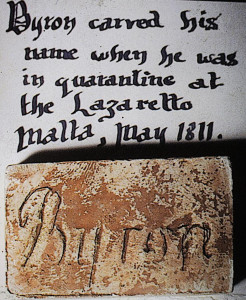 Byron carved his
name when he was
in quarantine at
the Lazaretto
Malta, May 1811.
Byron